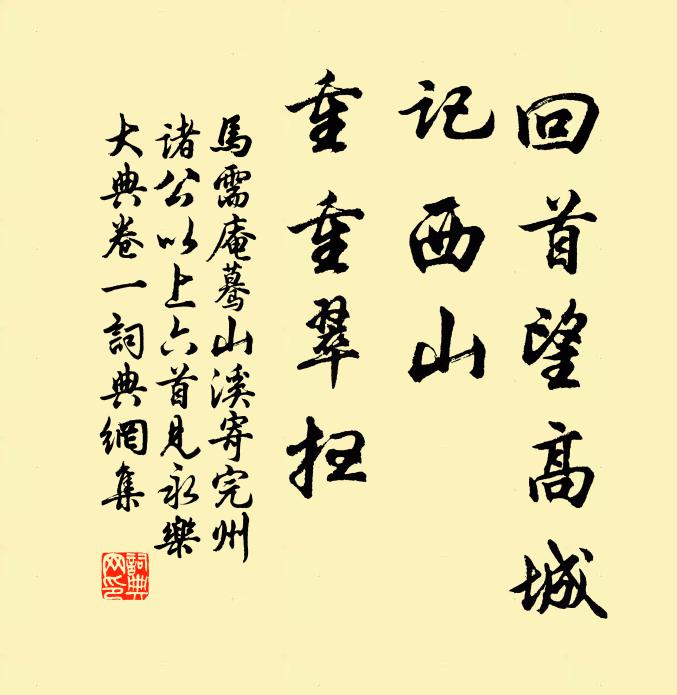 回首望高城
記西山
重重翠
馬需庵驀山溪寄完州
諸公以上六首見永樂
大典卷一詞典網集
詞典
网印